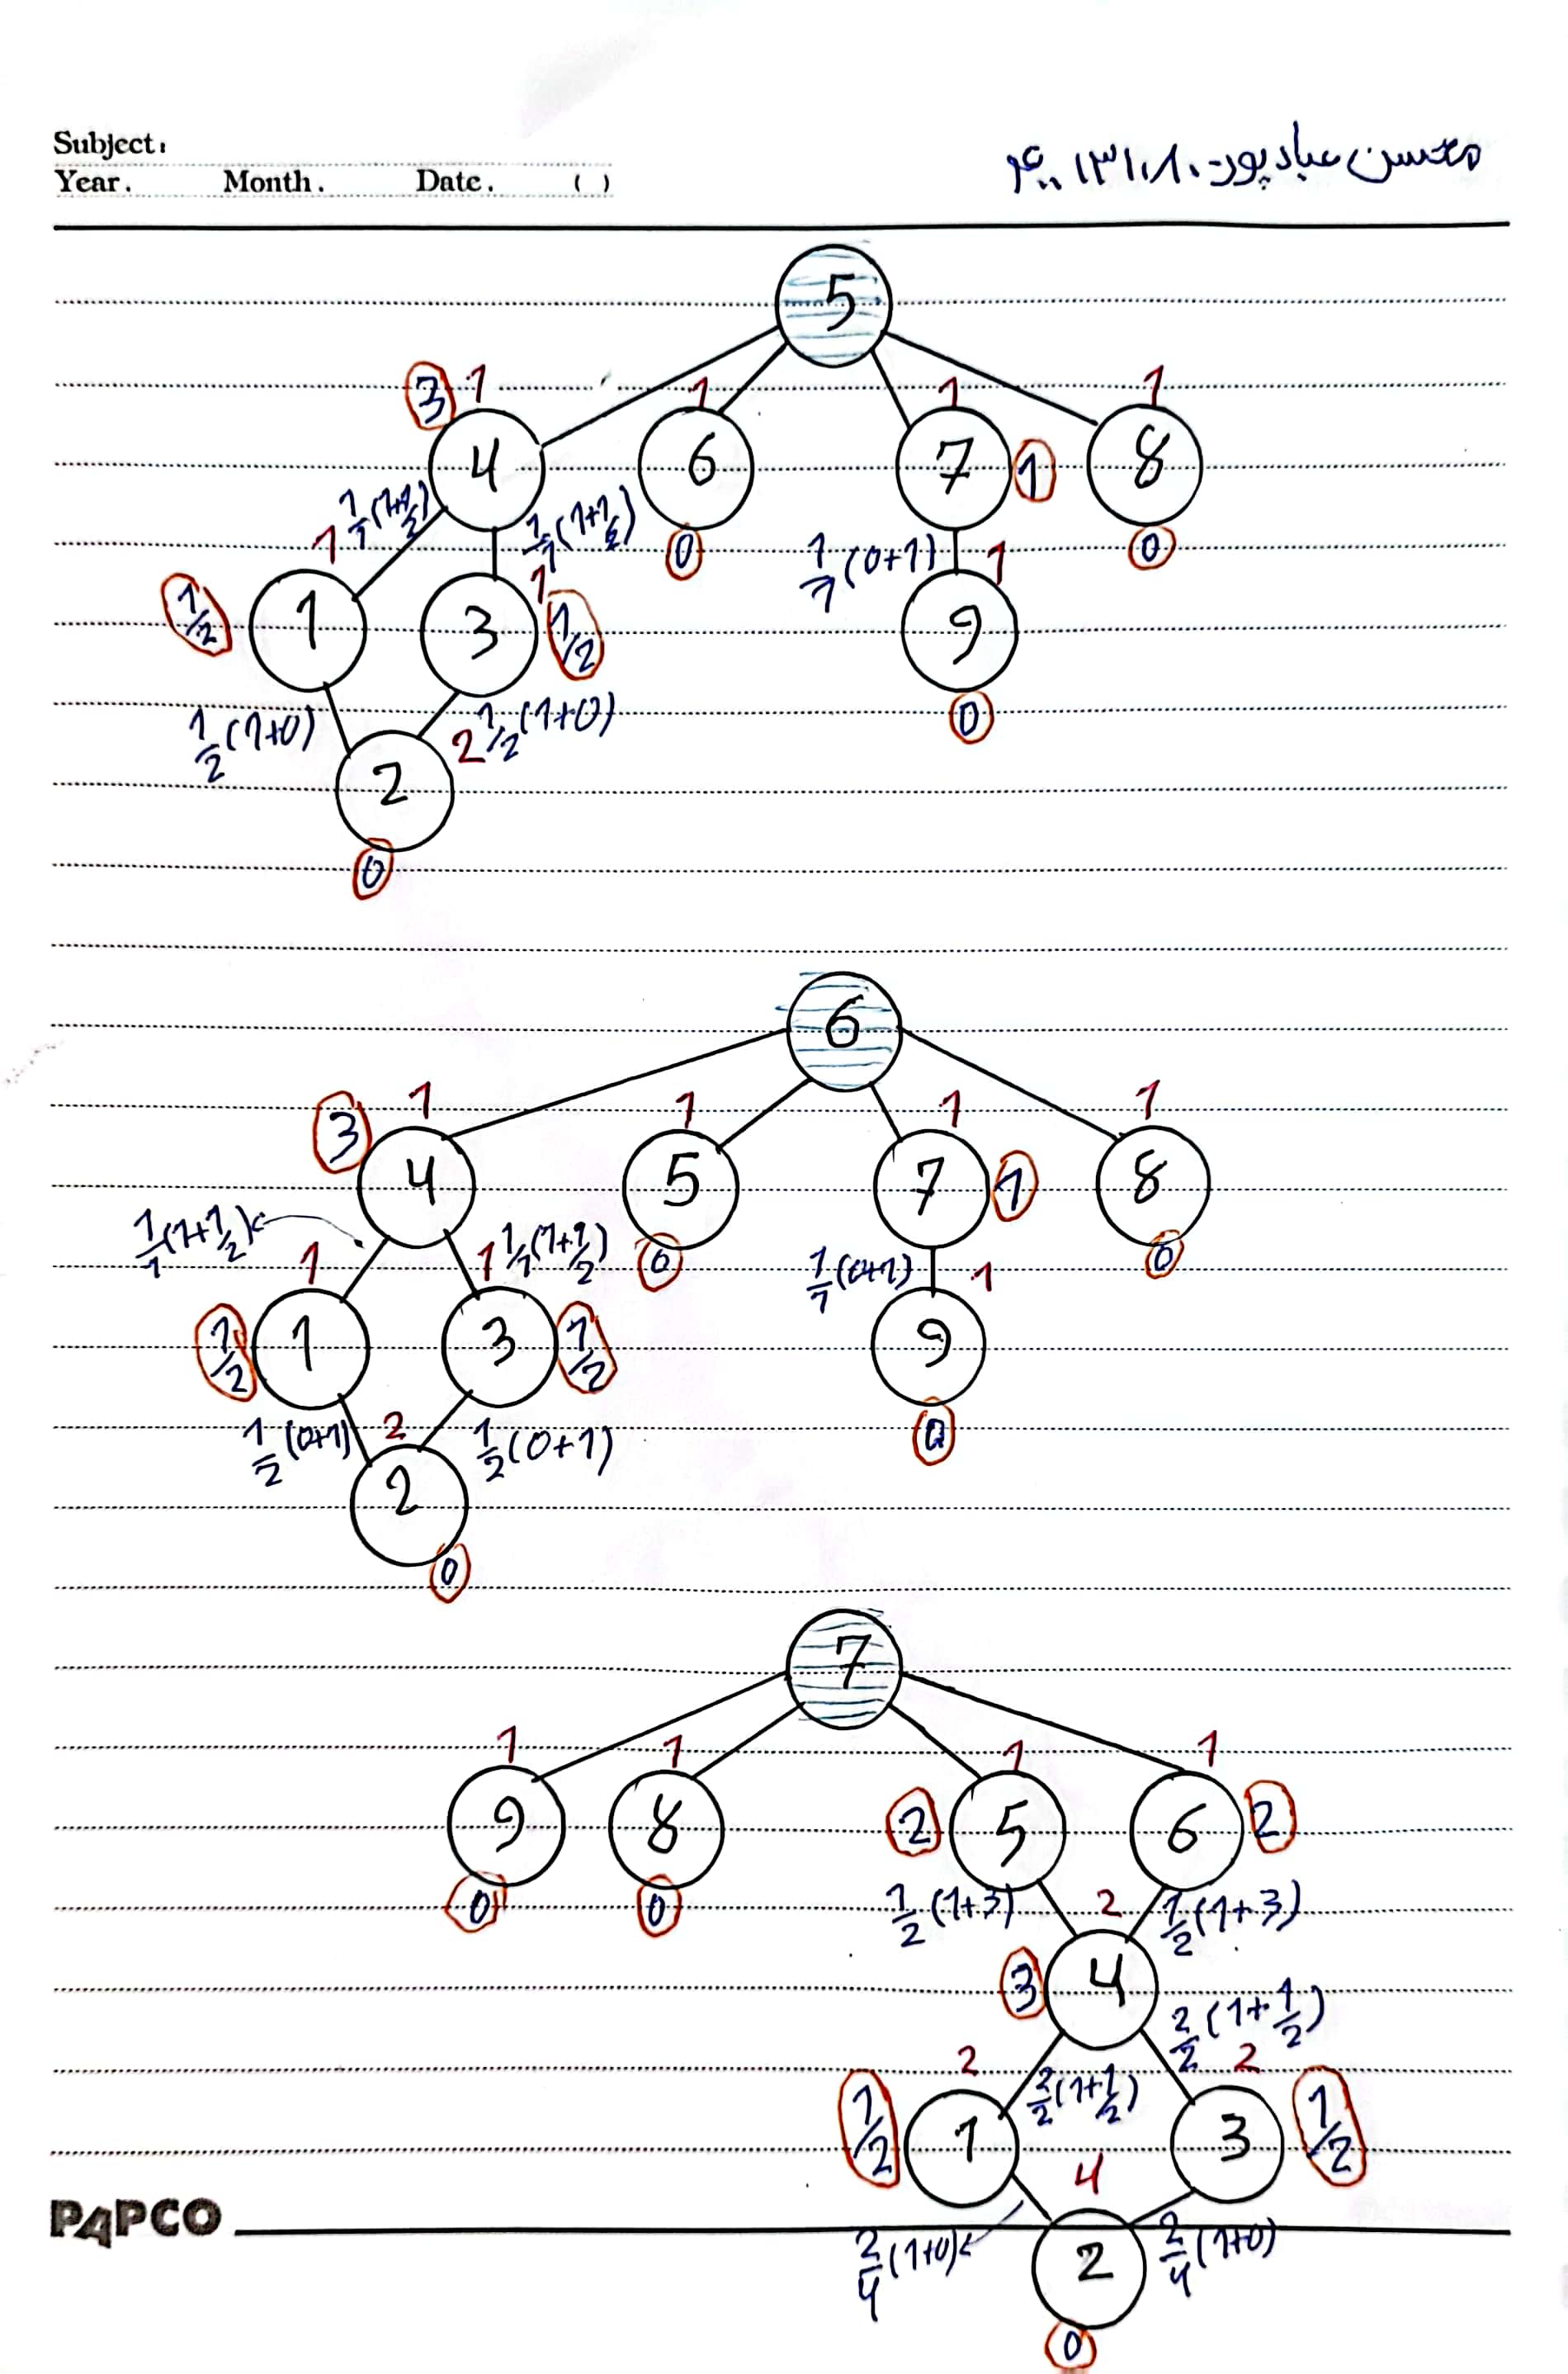 Subject:
Year. Month. Date. ( )
محسن عبادپور - ۴۰۰۱۳۱۰۸۰
5
3 1 1 1 1
4 6 7 1 8
1 1/1(1+1/2) 1/1(1+1/2) 0 1/1(0+1) 1 0
1/2 1 3 1 1/2 9
1/2(1+0) 2 1/2(1+0) 0
2
0
6
3 1 1 1 1
4 5 7 1 8
1/1(1+1/2) 1 1 1/1(1+1/2) 0 1/1(0+1) 1 0
1/2 1 3 1/2 9
1/2(0+1) 2 1/2(0+1) 0
2
0
7
1 1 1 1
9 8 2 5 6 2
0 0 1/2(1+3) 2 1/2(1+3)
3 4
2 2/2(1+1/2) 2/2(1+1/2) 2
1/2 1 3 1/2
4
PAPCO
2/4(1+0) 2 2/4(1+0)
0